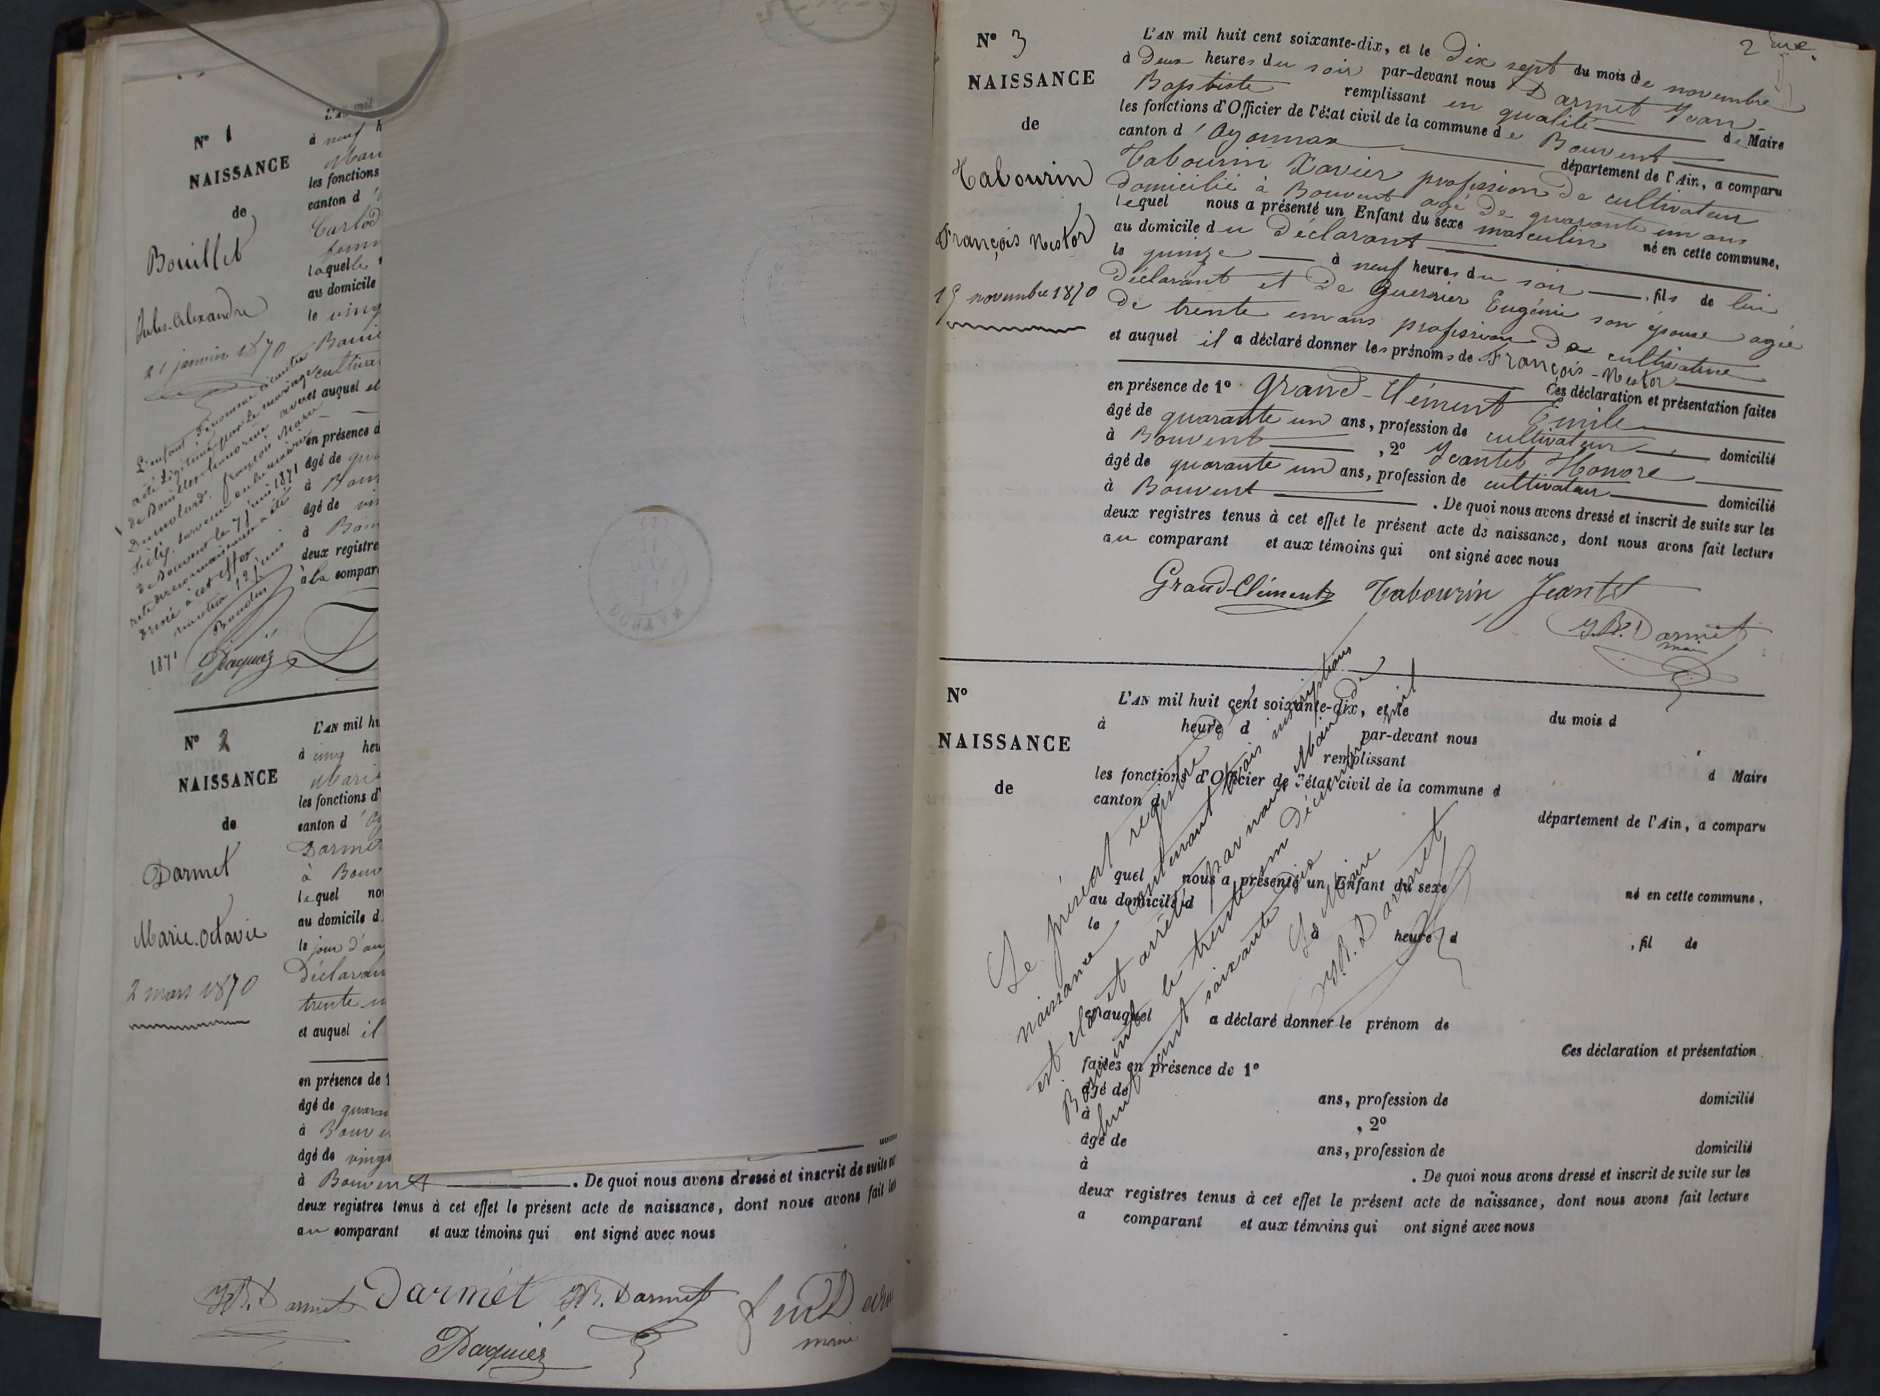 N° 1
NAISSANCE
de
Bouillet
Jules-Alexandre
21 janvier 1870
L'AN mil
à neuf h
Mari
les fonctions
canton d
femm
laquelle
au domicile
le ving
cultiva
et auquel el
en présence d
âgé de qua
à Bouv
âgé de vin
à Bouv
deux registre
à la compar
L'enfant dénommé
acte légitimé par le mariage
de Bouillet
avec
de Bouvent le 7 juin 1871
dressé à cet effet
12 juin
1871
Daquiéz
N° 2
NAISSANCE
de
Darmet
Marie-Octavie
2 mars 1870
L'AN mil hu
à cinq heu
Marie
les fonctions d'
canton d'Oy
Darmet
à Bouv
lequel no
au domicile d
le jour d'au
Déclaran
trente-u
et auquel il
en présence de 1
âgé de quaran
à Bouve
âgé de vingt
à Bouvent . De quoi nous avons dressé et inscrit de suite sur
deux registres tenus à cet effet le présent acte de naissance, dont nous avons fait lec
au comparant et aux témoins qui ont signé avec nous
J.B. Darmet Darmet J.B. Darmet
maire
Daquiéz
2ème
N° 3
NAISSANCE
de
Tabourin
François Nestor
15 novembre 1870
L'AN mil huit cent soixante-dix, et le Dix sept du mois de novembre
à Deux heures du soir par-devant nous Darmet Jean
Baptiste remplissant en qualité de Maire
les fonctions d'Officier de l'état civil de la commune de Bouvent
canton d'Oyonnax département de l'Ain, a comparu
Tabourin Xavier profession de cultivateur
domicilié à Bouvent agé de quarante un ans
lequel nous a présenté un Enfant du sexe masculin né en cette commune,
au domicile du Déclarant
le quinze à neuf heures du soir , fils de lui
Déclarant et de Guerrier Eugénie son épouse agée
de trente un ans profession de cultivatrice
et auquel il a déclaré donner les prénoms de François-Nestor
Ces déclaration et présentation faites
en présence de 1° Grand-Clément Emile
âgé de quarante un ans, profession de cultivateur domicilié
à Bouvent , 2° Jeantet Honoré
âgé de quarante un ans, profession de cultivateur domicilié
à Bouvent . De quoi nous avons dressé et inscrit de suite sur les
deux registres tenus à cet effet le présent acte de naissance, dont nous avons fait lecture
au comparant et aux témoins qui ont signé avec nous
Grand-Clément Tabourin Jeantet
J.B. Darmet
maire
N°
NAISSANCE
de
L'AN mil huit cent soixante-dix, et le du mois d
à heure d par-devant nous
remplissant d Maire
les fonctions d'Officier de l'état civil de la commune d
canton d département de l'Ain, a comparu
quel nous a présenté un Enfant du sexe né en cette commune,
au domicile d
le à heure d , fil de
et auquel a déclaré donner le prénom de
Ces déclaration et présentation
faites en présence de 1°
âgé de ans, profession de domicilié
à , 2°
âgé de ans, profession de domicilié
à . De quoi nous avons dressé et inscrit de suite sur les
deux registres tenus à cet effet le présent acte de naissance, dont nous avons fait lecture
a comparant et aux témoins qui ont signé avec nous
Le présent registre de
naissance contenant trois inscriptions
est clos et arrêté par nous Maire de
Bouvent le trente un décembre mil
huit cent soixante dix
Le Maire
J.B. Darmet